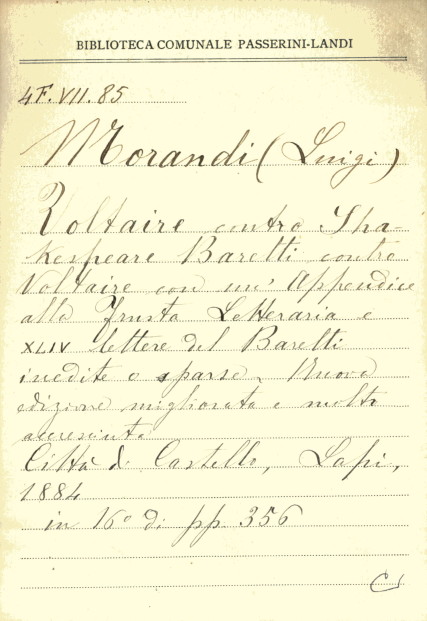 BIBLIOTECA COMUNALE PASSERINI-LANDI
4F.VII.85
Morandi (Luigi)
Voltaire contro Sha-
kespeare Baretti contro
Voltaire con un' Appendice
alla Frusta Letteraria e
XLIV lettere del Baretti
inedite o sparse. Nuova
edizione migliorata e molto
accresciuta
Città di Castello, Lapi,
1884
in 16° di pp. 356